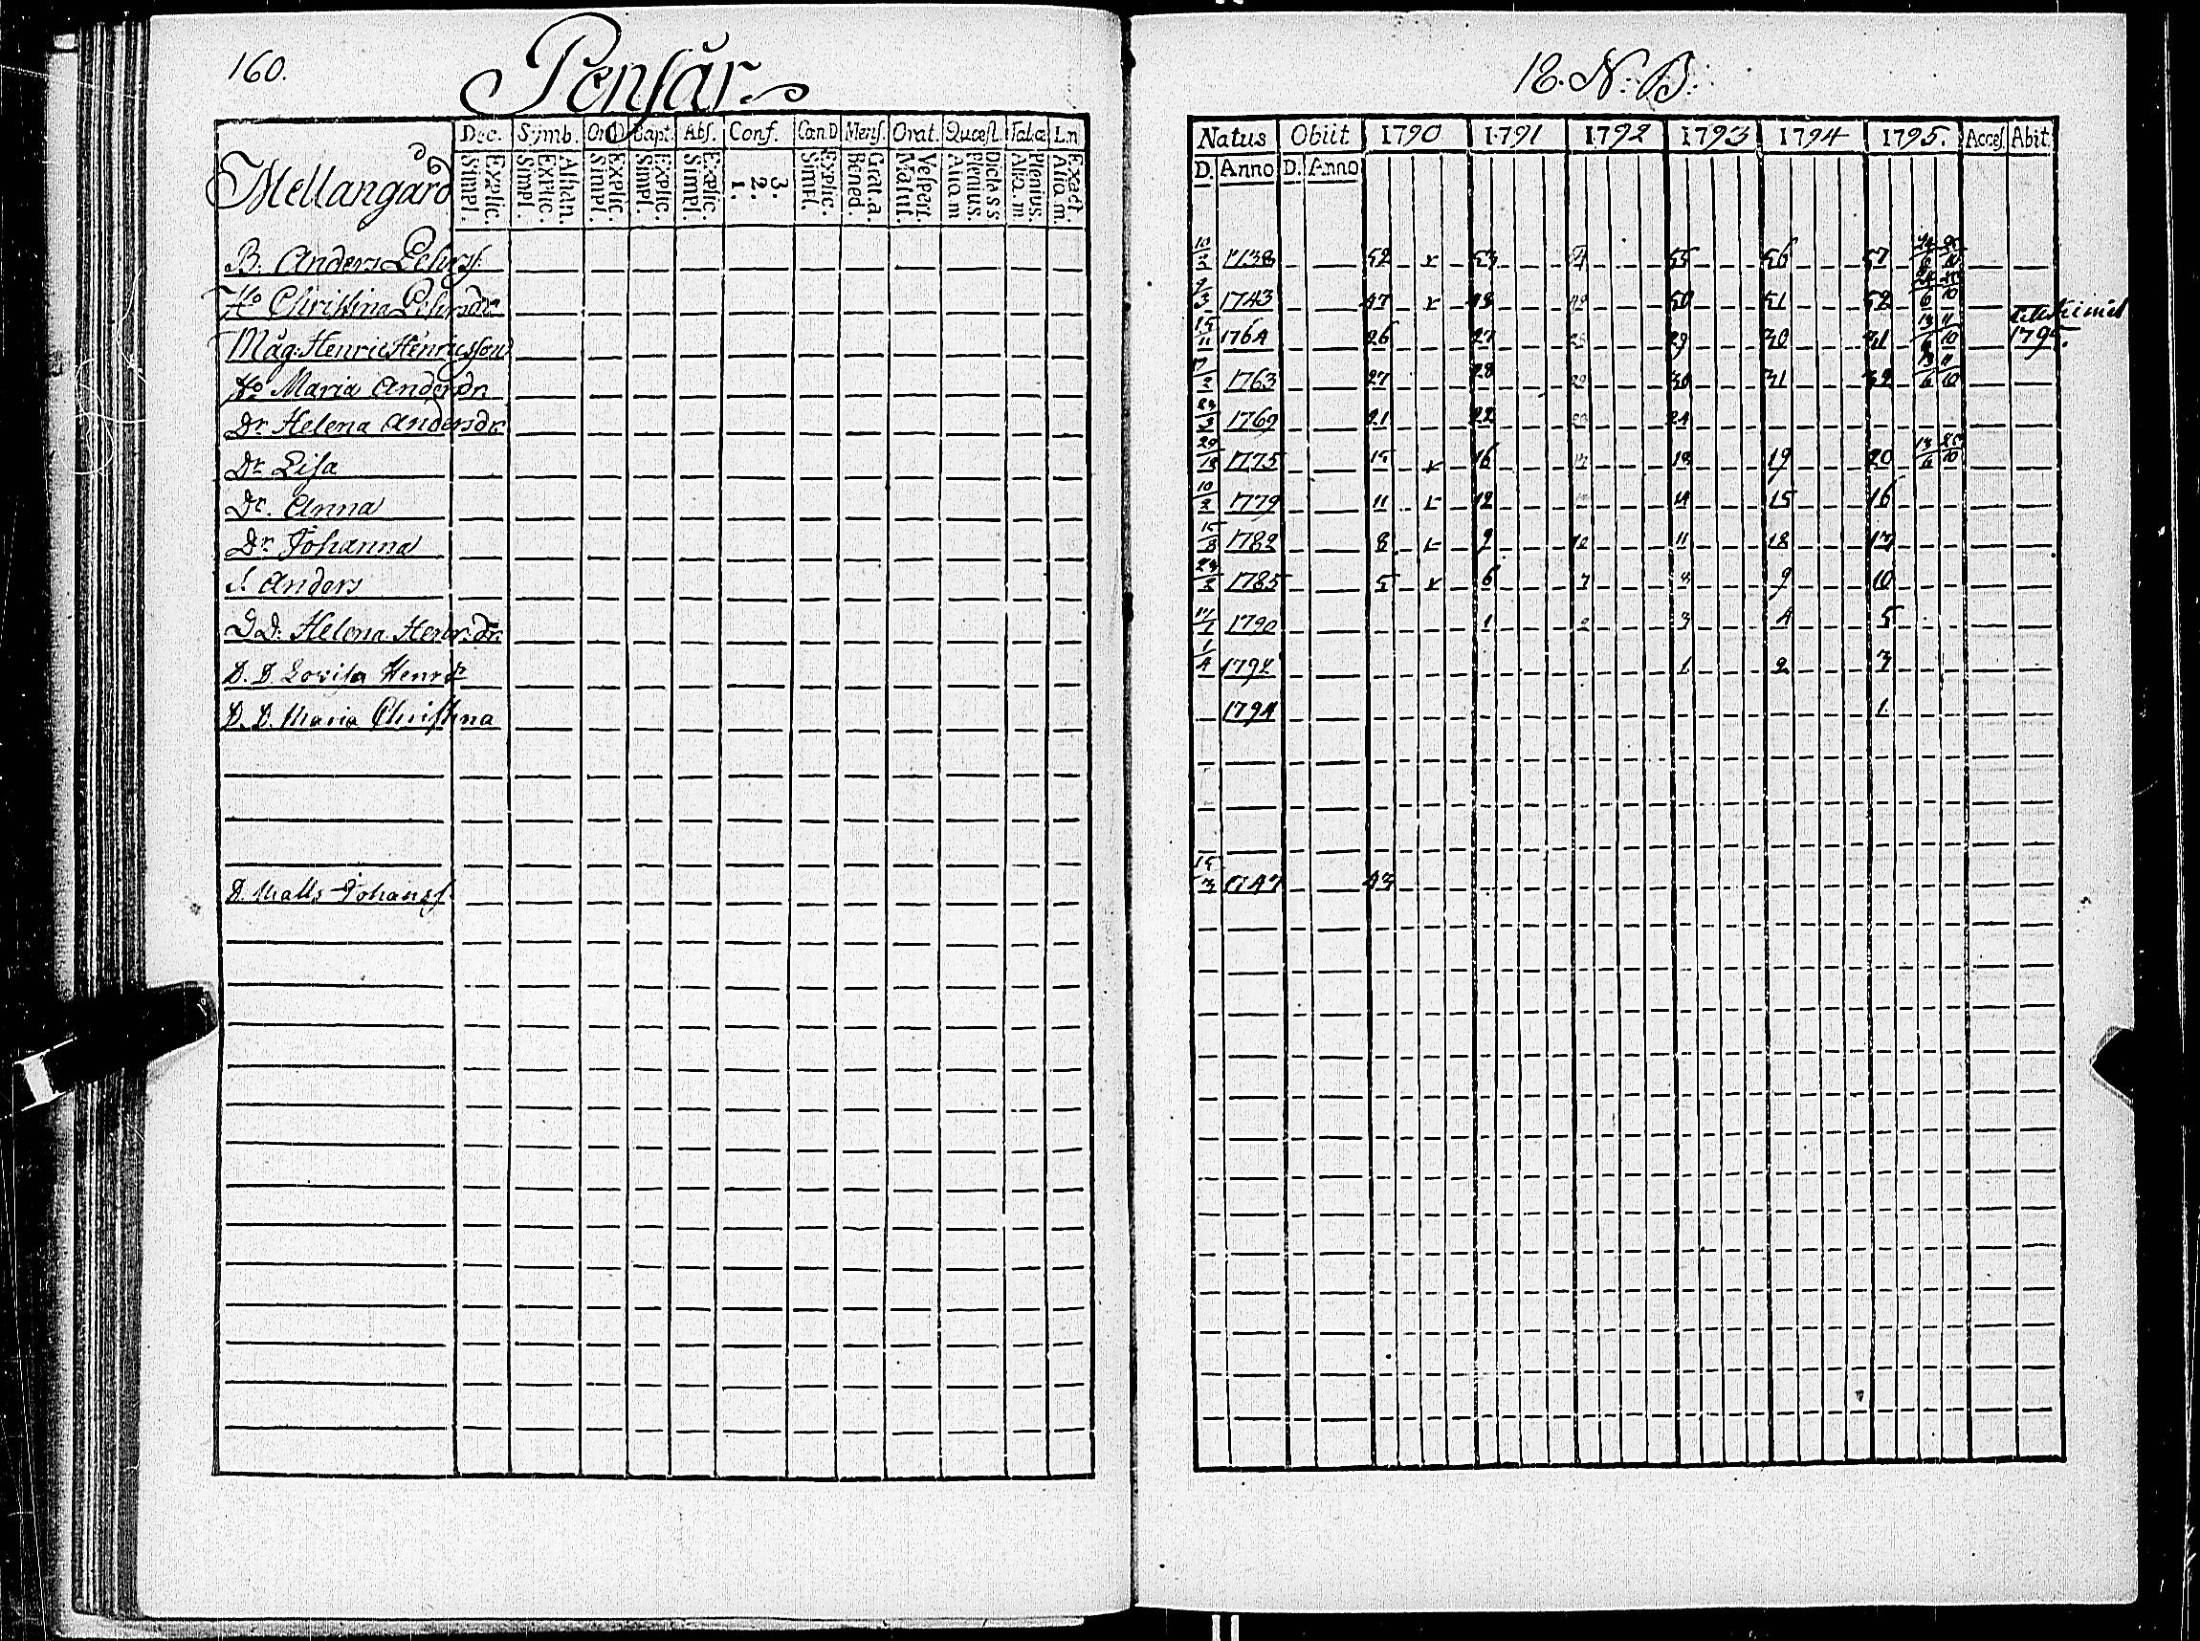 160. Pensår.
Dec. Symb. Or.D Bapt. Abs. Conf. Can D Mens. Orat. Quæst. Tab.œ L.n
Mellangård
Explic. Simpl. Athan. Explic. Simpl. Explic. Simpl. Explic. Simpl. Explic. Simpl. 3. 2. 1. Explic. Simpl. Grat.a. Bened. Vespert. Matut. Dict.a s.s. Plenius. Aliq.m Plenius. Aliq.m. Exact. Aliq.m.
B. Anders Pehrss.
Ho Christina Pehrsdr
Måg. Henric Henricsson
Ho Maria Andersdr
Dr Helena Andersdr
Dr Lisa
Dr. Anna
Dr Johanna
S. Anders
D D. Helena Henr.dr.
D. D Lovisa Henrdr
D. D. Maria Christina
D. Matts Johanss.
18. N. B.
Natus Obiit 1790 1791 1792 1793 1794 1795. Acces. Abit.
D. Anno D. Anno
10/2 1738 52 x 53 54 55 56 57
9/3 1743 47 x 48 49 50 51 52
15/11 1764 26 27 28 29 30 31 13/6 11/10 1795.
17/2 1763 27 28 29 30 31 32 13/6 11/10
23/3 1769 21 22 23 24
29/12 1775 15 x 16 17 18 19 20
10/2 1779 11 x 12 14 15 16
15/8 1782 8 x 9 10 11 12 13
23/2 1785 5 x 6 7 8 9 10
1790 1 2 3 4 5
1/4 1792 1 2 3
1794 1
15/3 1747 43